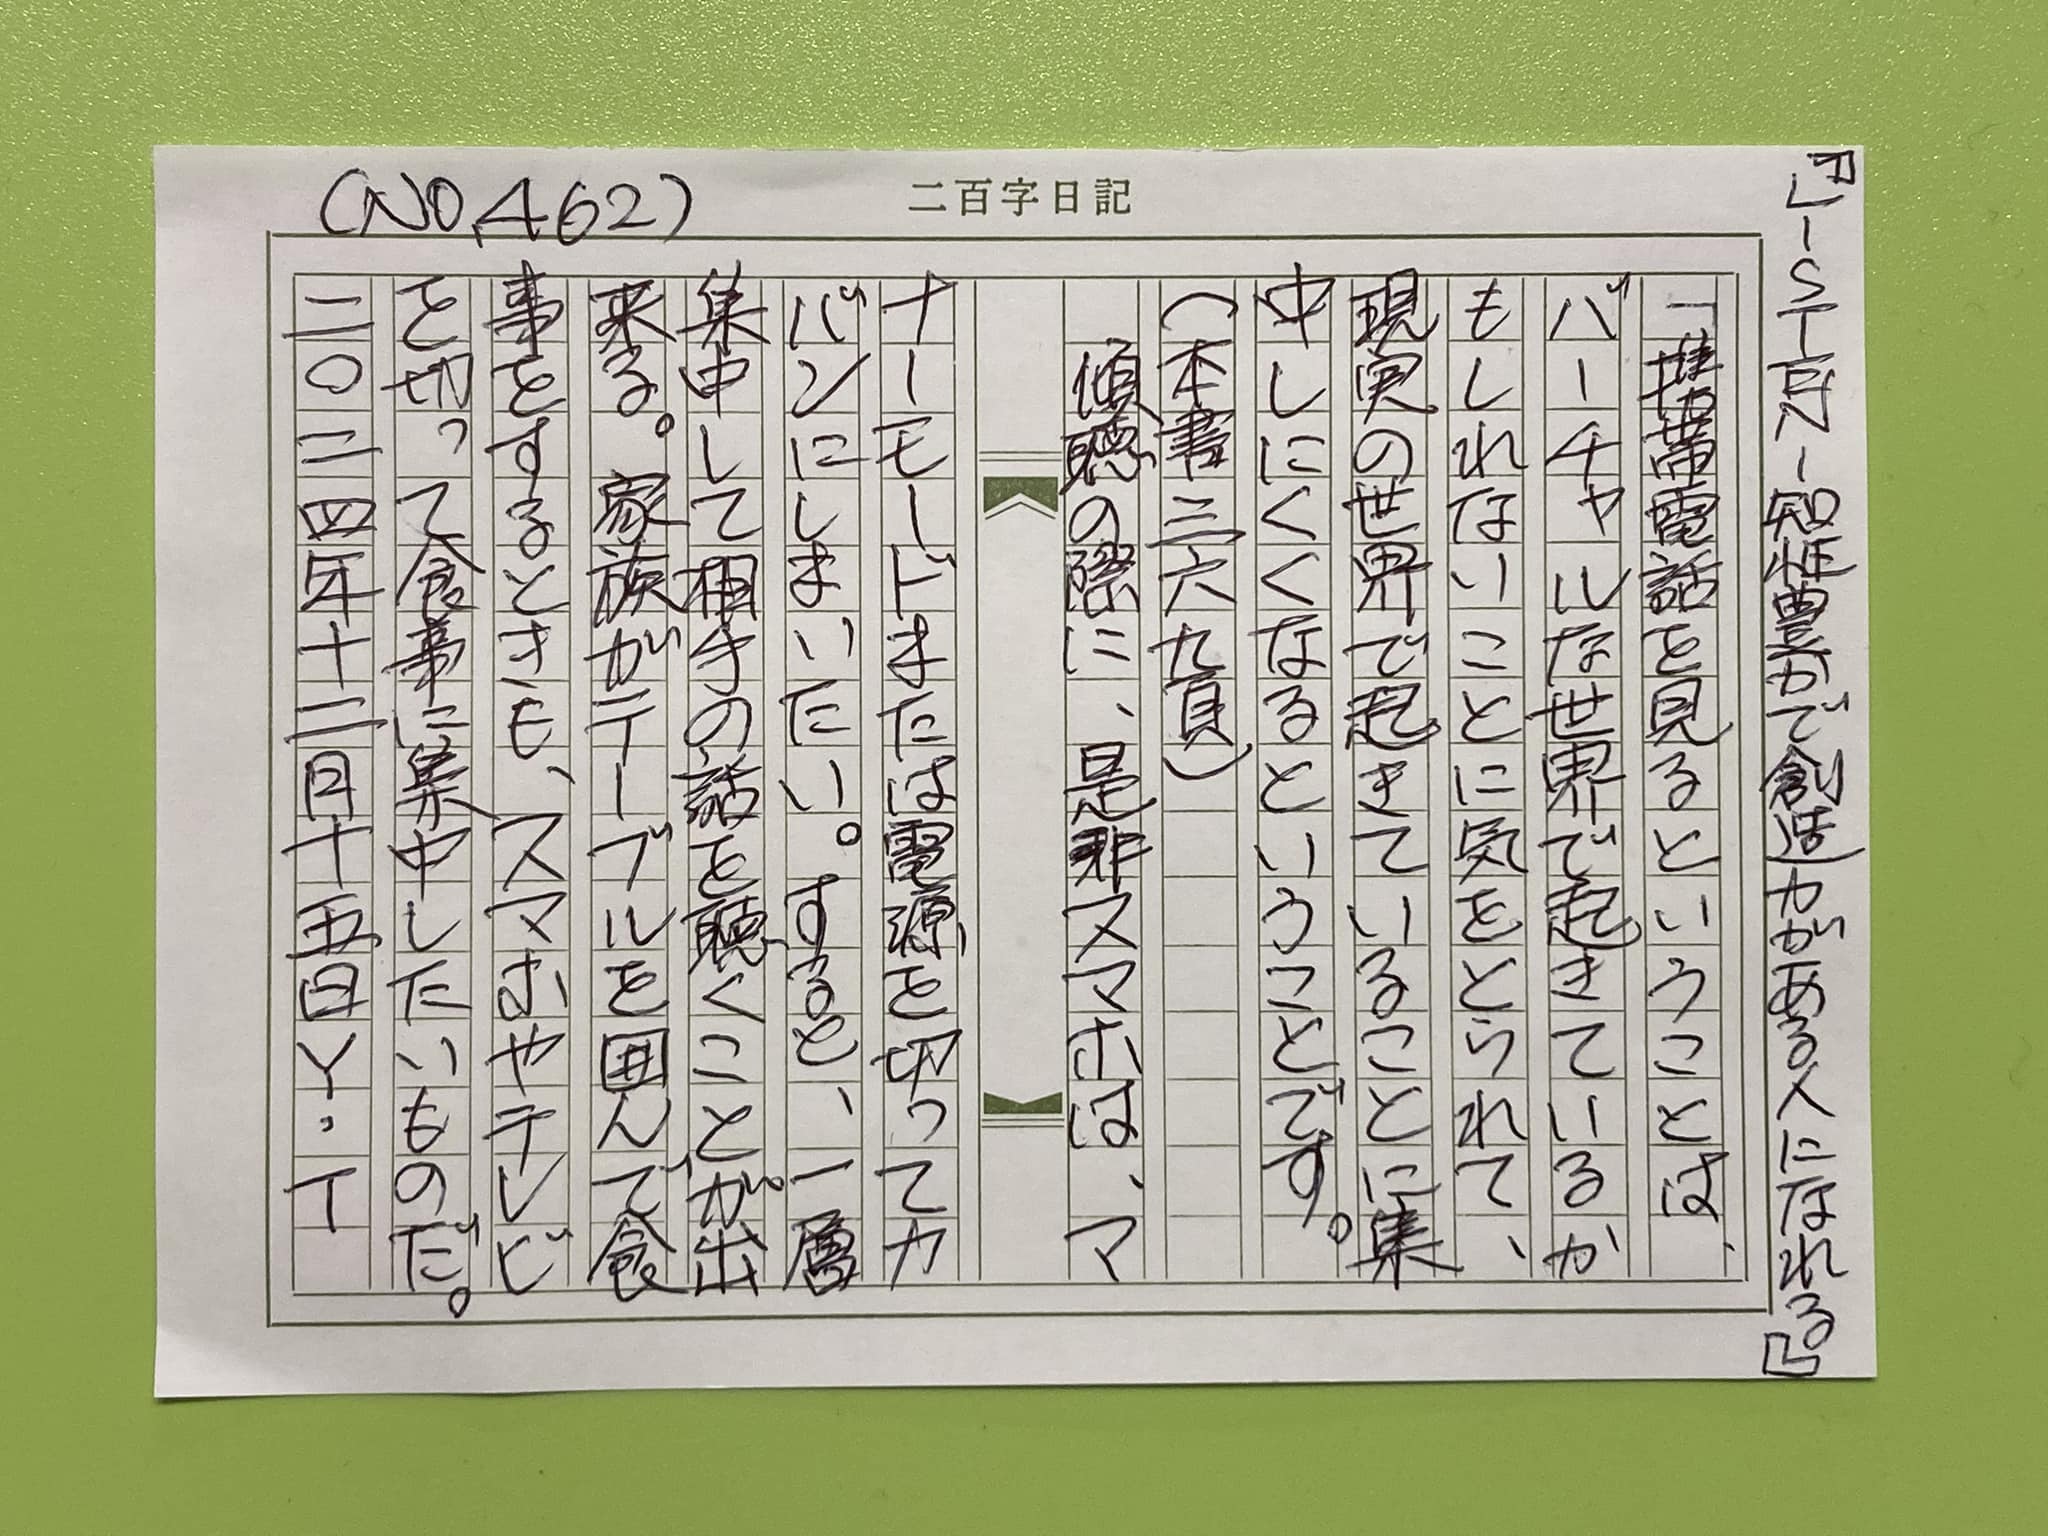 二百字日記
(NO.462)
『LISTEN-知性豊かで創造力がある人になれる』
「携帯電話を見るということは、
バーチャルな世界で起きているか
もしれないことに気をとられて、
現実の世界で起きていることに集
中しにくくなるということです。
(本書三六九頁)
傾聴の際に、是非スマホは、マ
ナーモードまたは電源を切ってカ
バンにしまいたい。すると、一層
集中して相手の話を聴くことが出
来る。家族がテーブルを囲んで食
事をするときも、スマホやテレビ
を切って食事に集中したいものだ。
二〇二四年十二月十五日Y・T